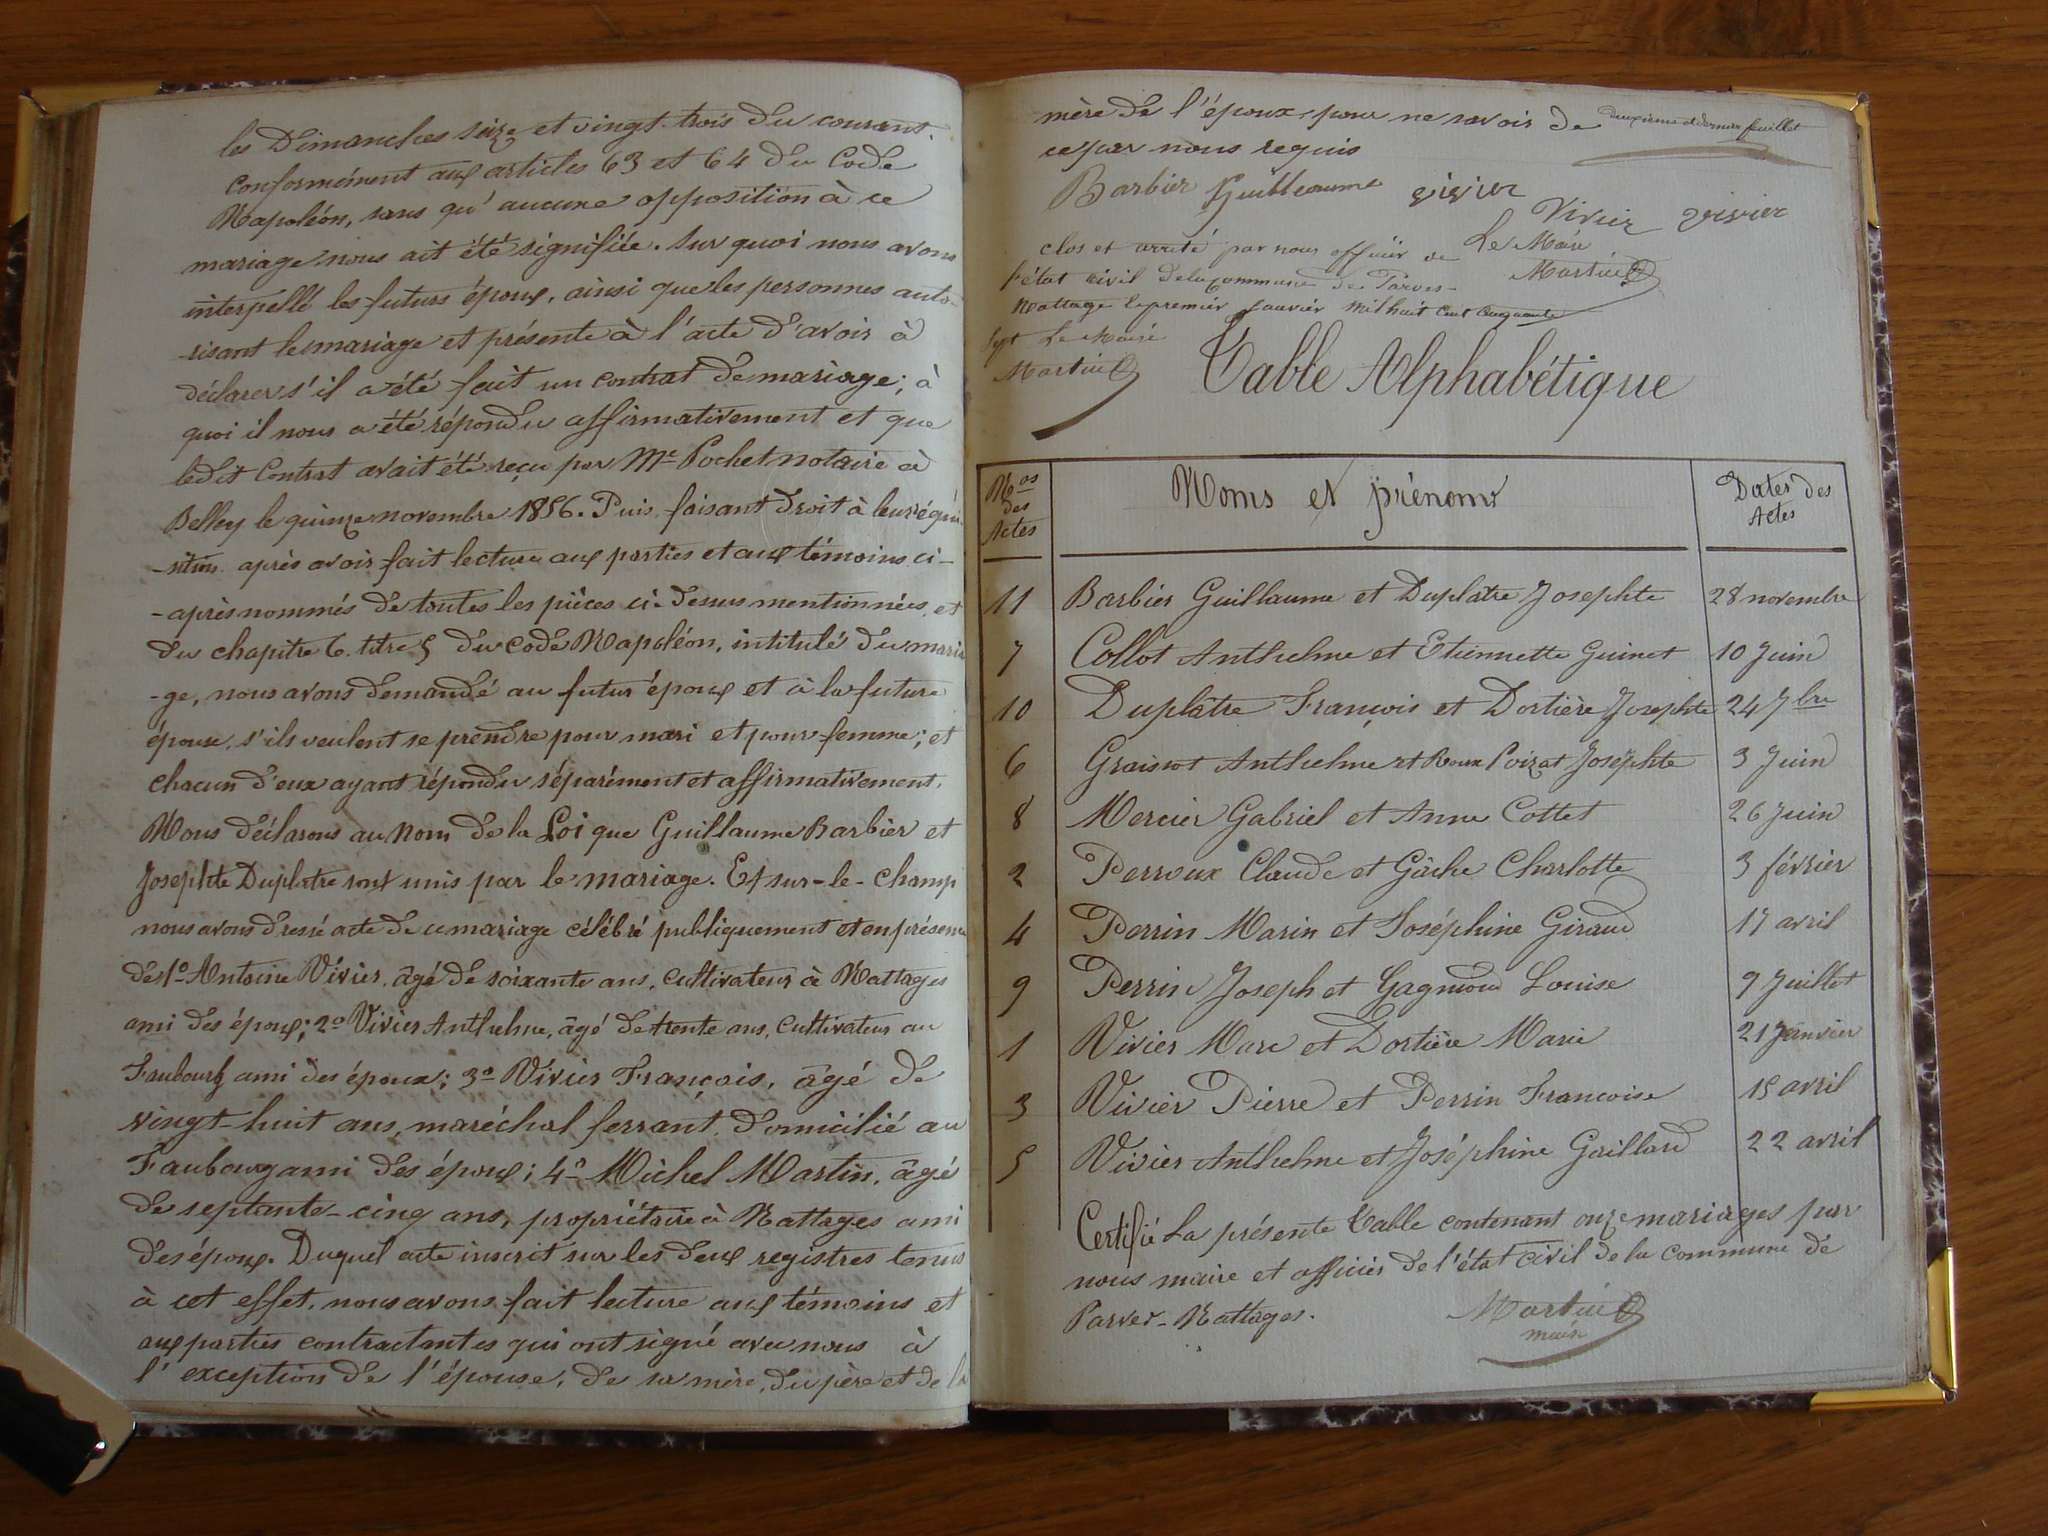 les Dimanches seize et vingt-trois du courant.
conformément aux articles 63 et 64 du Code
Napoléon, sans qu'aucune opposition à ce
mariage nous ait été signifiée. Sur quoi nous avons
interpellé les futurs époux, ainsi que les personnes auto-
-risant le mariage et présente à l'acte d'avoir à
déclarer s'il a été fait un contrat de mariage; à
quoi il nous a été répondu affirmativement et que
ledit Contrat avait été reçu par Me Pochet notaire à
Belley le quinze novembre 1856. Puis faisant droit à leur réqui
-sition après avoir fait lecture aux parties et aux témoins ci-
-après nommés de toutes les pièces ci-dessus mentionnées et
du chapitre 6 titre 5 du Code Napoléon, intitulé du maria
-ge, nous avons demandé au futur époux et à la future
épouse, s'ils veulent se prendre pour mari et pour femme; et
chacun d'eux ayant répondu séparément et affirmativement,
Nous déclarons au nom de la Loi que Guillaume Barbier et
Josephte Duplatre sont unis par le mariage. Et sur-le-champ
nous avons dressé acte de ce mariage célébré publiquement et en présence
de 1º Antoine Vivier, âgé de soixante ans, cultivateur à Nattages
ami des époux; 2º Vivier Anthelme, âgé de trente ans, cultivateur au
Faubourg ami des époux; 3º Vivier François, âgé de
vingt-huit ans, maréchal ferrant, domicilié au
Faubourg ami des époux; 4º Michel Martin, âgé
de septante-cinq ans, propriétaire à Nattages ami
des époux. Duquel acte inscrit sur les deux registres tenus
à cet effet, nous avons fait lecture aux témoins et
aux parties contractantes qui ont signé avec nous à
l'exception de l'épouse, de sa mère, du père et de la
mère de l'époux pour ne savoir de
deuxième et dernier feuillet
ce par nous requis
Barbier Guilleaume vivier
Vivier vivier
clos et arrêté par nous officier de Le Maire
l'état civil de la Commune de Parves- Martin
Nattage le premier Janvier mil huit cent cinquante
Sept Le Maire
Martin
Table Alphabétique
Nos des Actes Noms et prénoms Dates des Actes
11 Barbier Guillaume et Duplatre Josephte 28 novembre
7 Collot Anthelme et Etiennette Guinet 10 Juin
10 Duplâtre François et Dortière Josephte 24 7bre
6 Graisot Anthelme et Roux Poizat Joséphte 3 Juin
8 Mercier Gabriel et Anne Cottet 26 Juin
2 Perroux Claude et Gâche Charlotte 3 février
4 Perrin Marin et Joséphine Giraud 17 avril
9 Perrin Joseph et Gagnoud Louise 9 Juillet
1 Vivier Marc et Dortière Marie 21 Janvier
3 Vivier Pierre et Perrin Francoise 15 avril
5 Vivier Anthelme et Joséphine Gaillard 22 avril
Certifié La présente Table contenant onze mariages par
nous maire et officier de l'état civil de la commune de
Parves-Nattages. Martin
maire